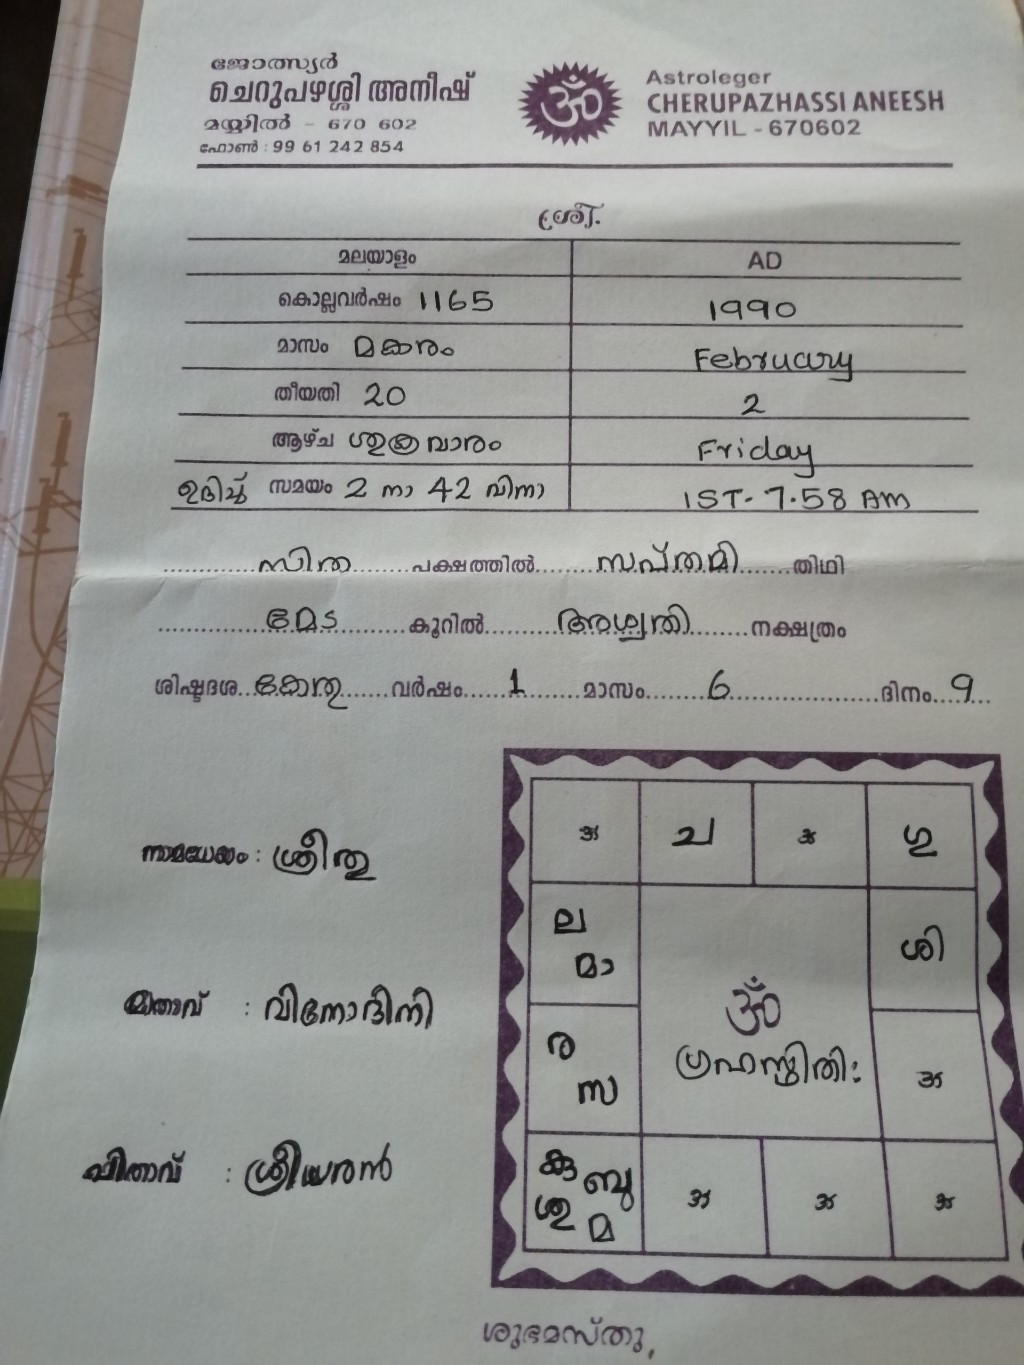 ജോത്സ്യർ
ചെറുപഴശ്ശി അനീഷ്
മയ്യിൽ - 670 602
ഫോൺ : 99 61 242 854
ॐ
Astroleger
CHERUPAZHASSI ANEESH
MAYYIL - 670602
ശ്രീ.
മലയാളം AD
കൊല്ലവർഷം 1165 1990
മാസം മകരം February
തീയതി 20 2
ആഴ്ച ശുക്രവാരം Friday
ഉദിച്ച് സമയം 2 നാ 42 വിനാ IST- 7.58 Am
സിത പക്ഷത്തിൽ സപ്തമി തിഥി
മേട കൂറിൽ അശ്വതി നക്ഷത്രം
ശിഷ്ടദശ കേതു വർഷം 1 മാസം 6 ദിനം 9
നാമധേയം : ശ്രീതു
മാതാവ് : വിനോദിനി
പിതാവ് : ശ്രീധരൻ
ച ഗു
ല
മാ
ശി
ര
സ
ॐ
ഗ്രഹസ്ഥിതി:
കു ബു
ശു മ
ശുഭമസ്തു,